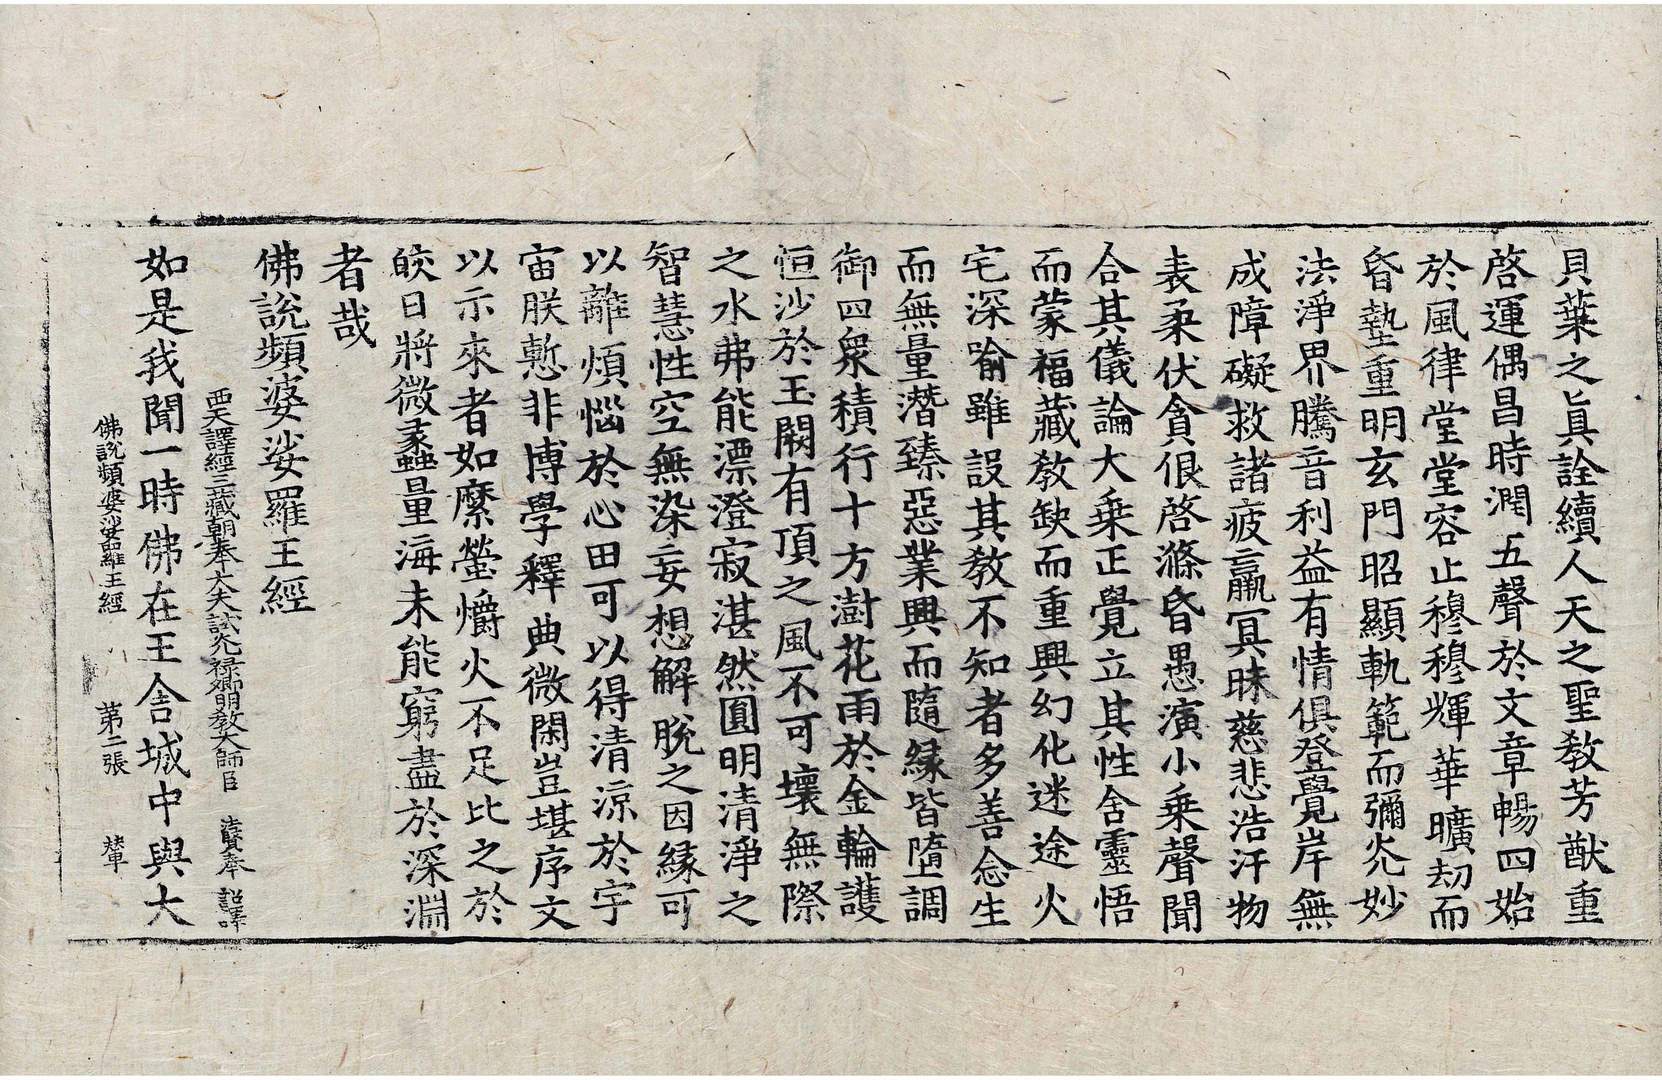 貝葉之眞詮續人天之聖教芳猷重
啓運偶昌時潤五聲於文章暢四始
於風律堂堂容止穆穆輝華曠劫而
昏墊重明玄門昭顯軌範而彌光妙
法淨界騰音利益有情俱登覺岸無
成障礙救諸疲羸冥昧慈悲浩汗物
表柔伏貪佷啓滌昏愚演小乘聲聞
合其儀論大乘正覺立其性含靈悟
而蒙福藏教缺而重興幻化迷途火
宅深喻雖設其教不知者多善念生
而無量潛臻惡業興而隨緣皆墮調
御四衆積行十方澍花雨於金輪護
恒沙於玉闕有頂之風不可壞無際
之水弗能漂澄寂湛然圓明清淨之
智慧性空無染妄想解脫之因緣可
以離煩惱於心田可以得清涼於宇
宙朕慙非博學釋典微閑豈堪序文
以示來者如縻螢爝火不足比之於
皎日將微蠡量海未能窮盡於深淵
者哉
佛說頻婆娑羅王經
西天譯經三藏朝奉大夫試光祿卿明教大師臣 法賢奉 詔譯
如是我聞一時佛在王舍城中與大
佛說頻婆娑羅王經 第二張